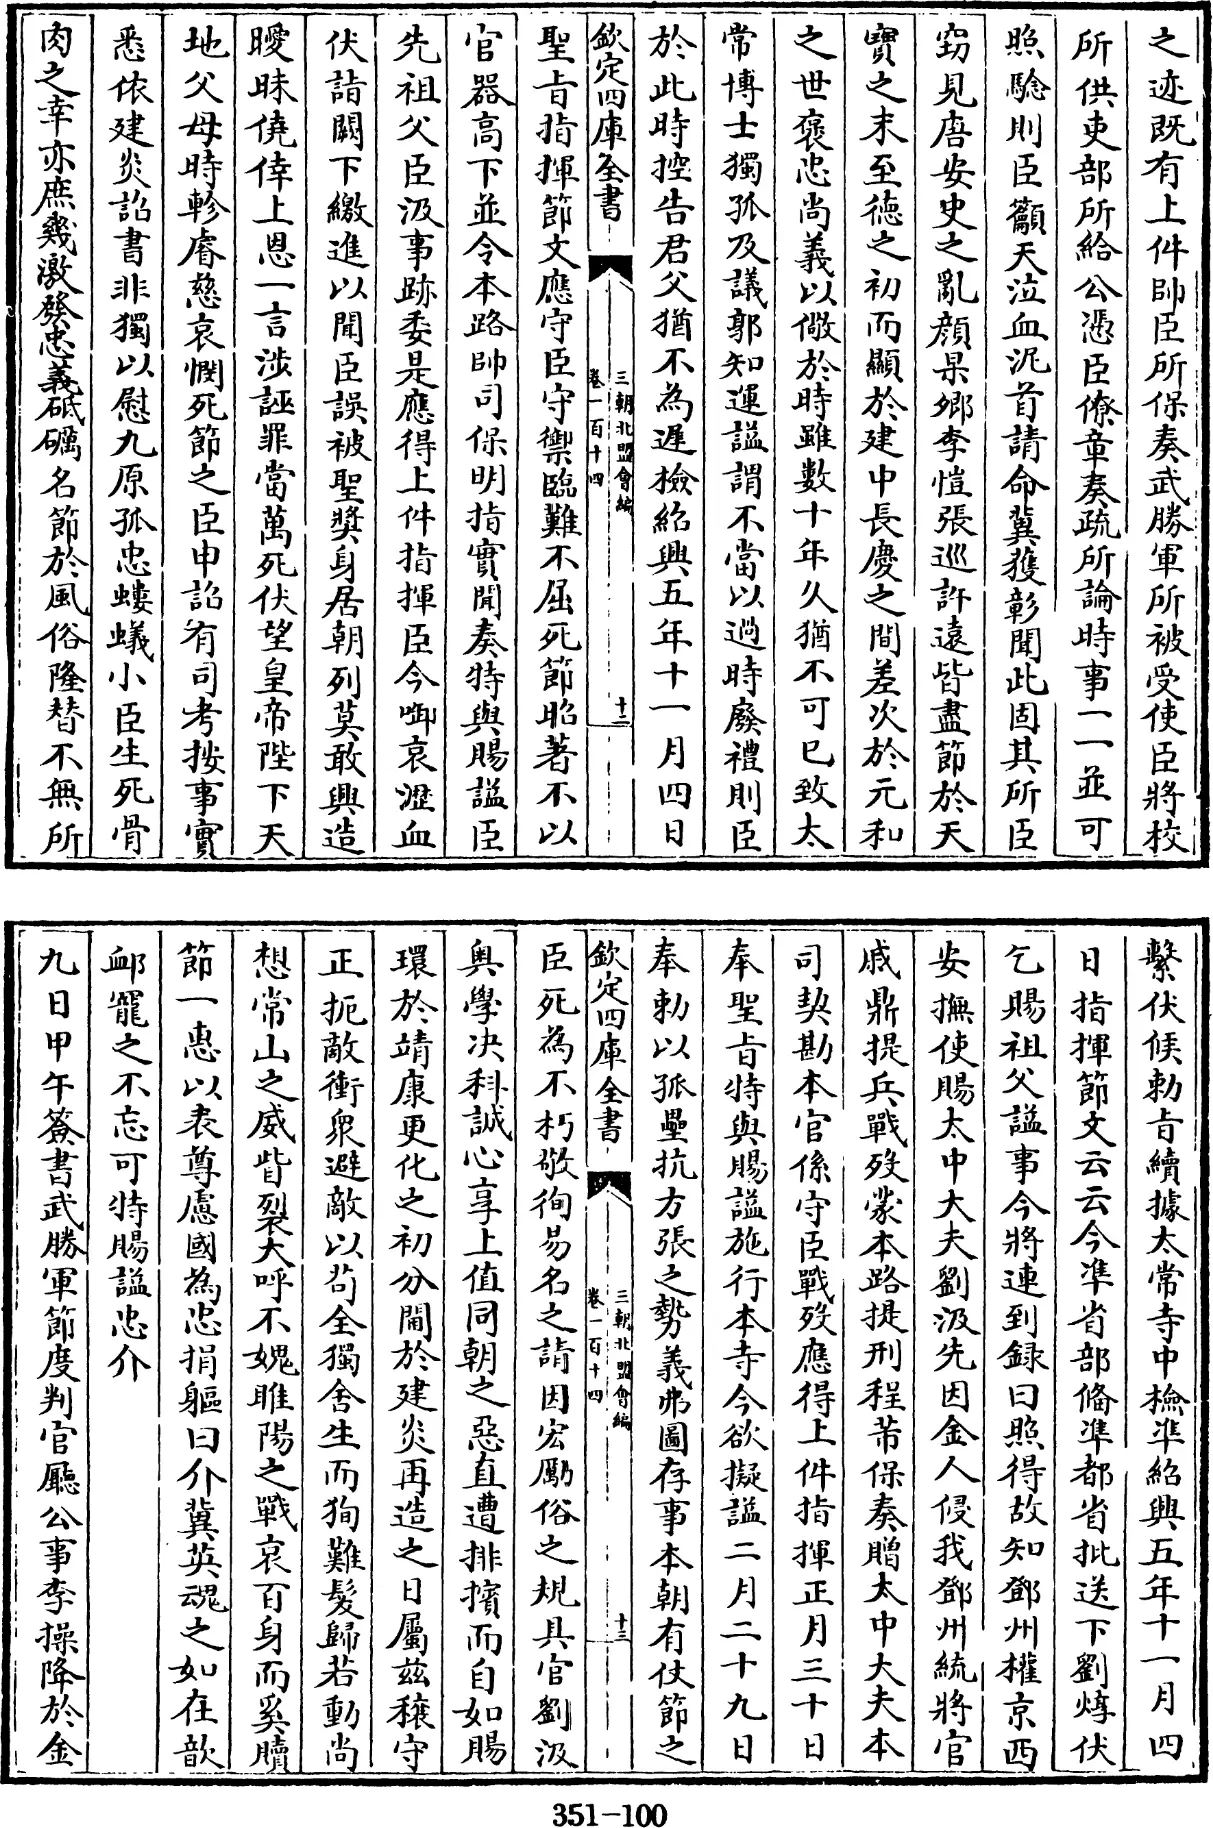 之迹既有上件帥臣所保奏武勝軍所被受使臣將校
所供吏部所給公憑臣僚章奏疏所論時事一一並可
照驗則臣籲天泣血泥首請命冀獲彰聞此固其所臣
竊見唐安史之亂顏杲卿李愷張巡許遠皆盡節於天
寶之末至德之初而顯於建中長慶之間差次於元和
之世褒忠尚義以儆於時雖數十年久猶不可已致太
常博士獨孤及議郭知運諡謂不當以過時廢禮則臣
於此時控告君父猶不為遲檢紹興五年十一月四日
欽定四庫全書
三朝北盟會編
卷一百十四
十二
聖旨指揮節文應守臣守禦臨難不屈死節昭著不以
官器高下並令本路帥司保明指實聞奏特與賜諡臣
先祖父臣汲事跡委是應得上件指揮臣今啣哀瀝血
伏詣闕下繳進以聞臣誤被聖獎身居朝列莫敢興造
曖昧僥倖上恩一言涉誣罪當萬死伏望皇帝陛下天
地父母時軫睿慈哀憫死節之臣申詔有司考按事實
悉依建炎詔書非獨以慰九原孤忠螻蟻小臣生死骨
肉之幸亦庶幾激發忠義砥礪名節於風俗隆替不無所
繫伏候勅旨續據太常寺申檢準紹興五年十一月四
日指揮節文云云今準省部備準都省批送下劉焞伏
乞賜祖父諡事今將連到録曰照得故知鄧州權京西
安撫使賜太中大夫劉汲先因金人侵我鄧州統將官
戚鼎提兵戰歿蒙本路提刑程芾保奏贈太中大夫本
司契勘本官係守臣戰歿應得上件指揮正月三十日
奉聖旨特與賜諡施行本寺今欲擬諡二月二十九日
奉勅以孤壘抗方張之勢義弗圖存事本朝有仗節之
欽定四庫全書
三朝北盟會編
卷一百十四
十三
臣死為不朽敬徇易名之請因宏勵俗之規具官劉汲
奥學决科誠心享上值同朝之惡直遭排擯而自如賜
環於靖康更化之初分閫於建炎再造之日屬兹穰守
正扼敵衝衆避敵以苟全獨舍生而狥難髮歸若動尚
想常山之威眥裂大呼不媿睢陽之戰哀百身而奚贖
節一惠以表尊慮國為忠捐軀曰介冀英魂之如在歆
䘏寵之不忘可特賜諡忠介
九日甲午簽書武勝軍節度判官廳公事李操降於金
351-100